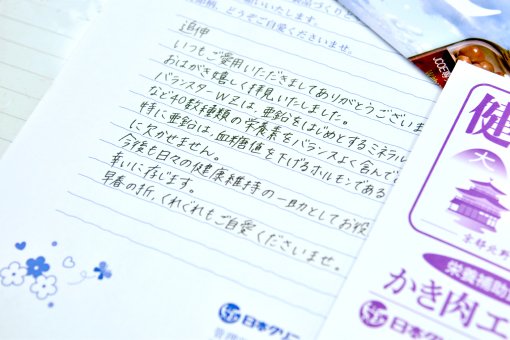 いいたします。
どうぞご自愛くださいませ。
追伸
いつもご愛用いただきましてありがとうございま
おはがき嬉しく拝見いたしました。
バランスターWZは、亜鉛をはじめとするミネラル
など40数種類の栄養素をバランスよく含んで
特に亜鉛は、血糖値を下げるホルモンである
に欠かせません。
今後も日々の健康維持の一助としてお役
幸いに存じます。
早春の折、くれぐれもご自愛くださいませ。
日本クリ
健
大
京都北野
栄養補助
かき肉エ
日本クリ